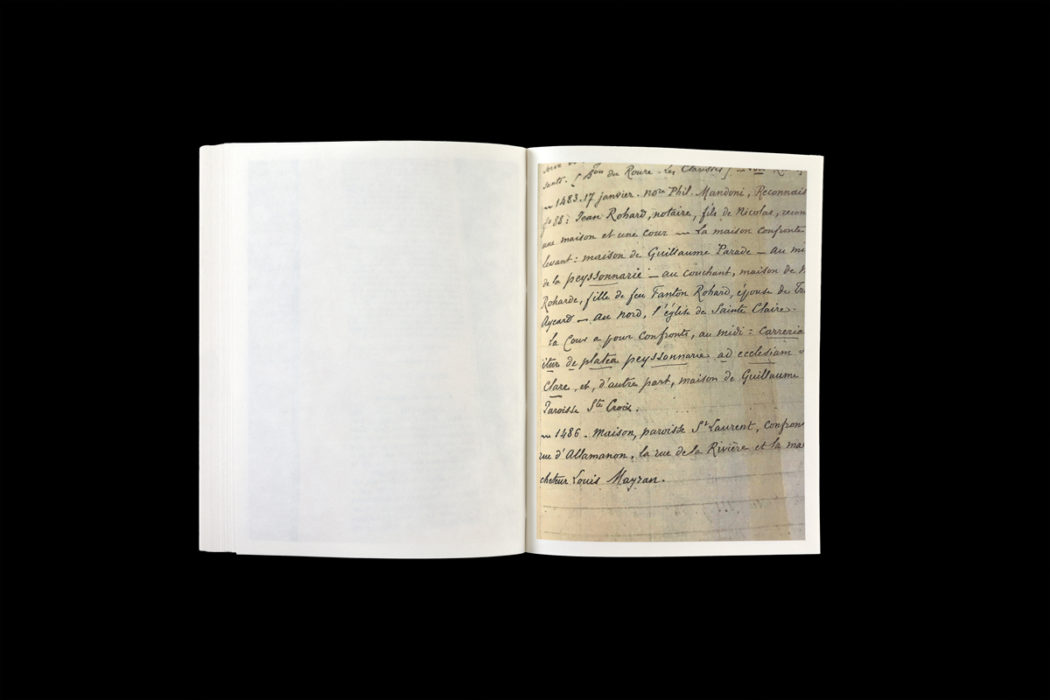 du Roure - les Clarisses
1483. 17 janvier. not. Phil. Mandoni, Reconnais
fo 88 : Jean Rohard, notaire, fils de Nicolas, recon
une maison et une cour — La maison confronte
levant : maison de Guillaume Parade — au mi
de la peyssonnarie — au couchant, maison de
Roharde, fille de feu Fanton Rohard, épouse de
Aycard — au nord, l'église de Sainte Claire.
la Cour a pour confronts, au midi : Carreria
itur de platea peyssonnarie ad ecclesiam
Clare, et, d'autre part, maison de Guillaume
Paroisse Ste Croix.
1486. Maison, paroisse St Laurent, confron
rue d'Allamanon, la rue de la Rivière et la ma
cheteur Louis Mayran.